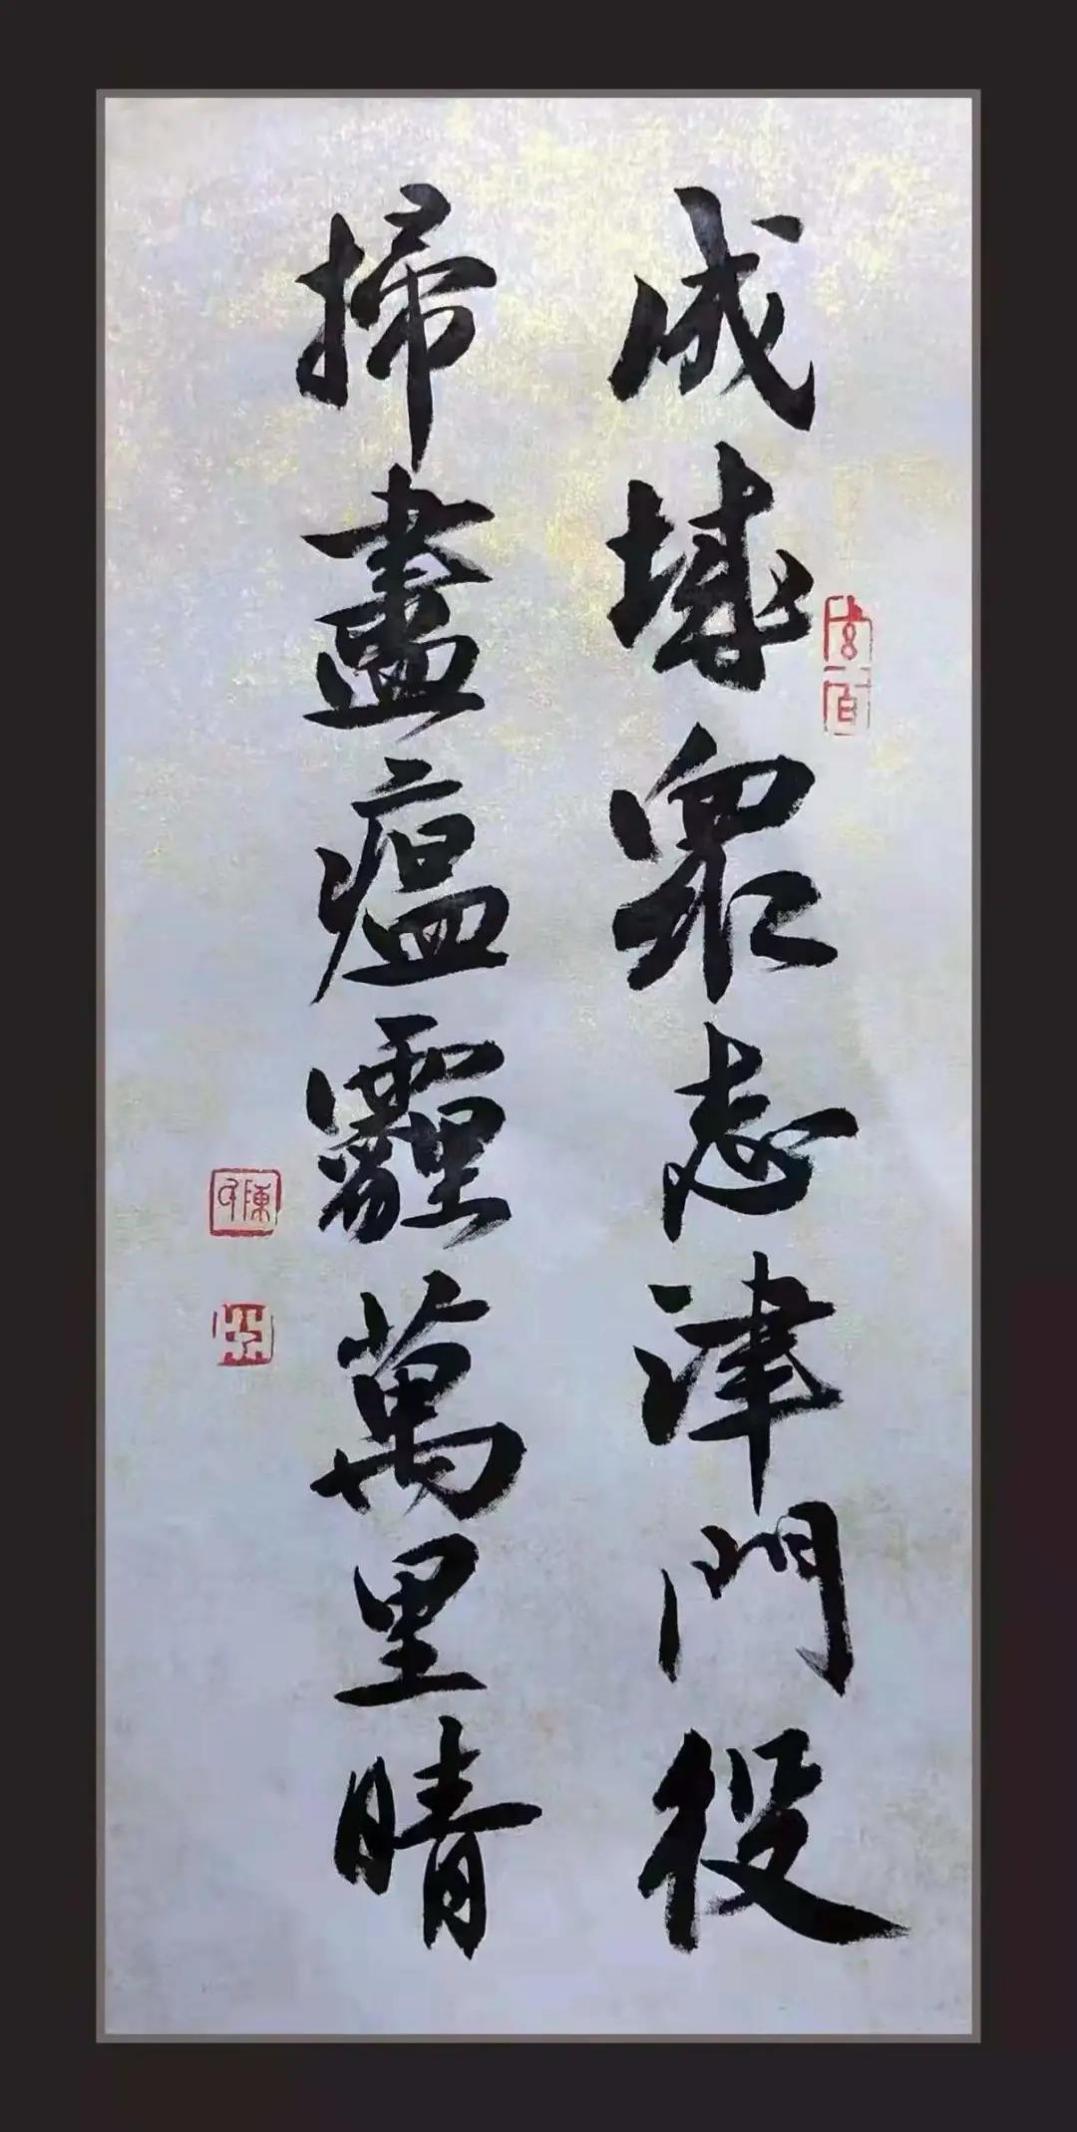 成城衆志津門役
掃盡瘟霾萬里晴